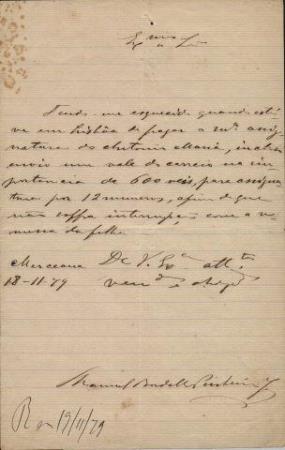 Exmo Sr
Tendo-me esquecido quando estive
em Lisboa de pagar a assig-
natura do Antonio Maria,
envio um vale do correio na im-
portancia de 600 reis, para assigna-
tura por 12 numeros, afim de que
não soffra interrupção com a re-
messa da folha
Merceana De V. Exª attº
18-11-79 venº e obrigº
Manuel
R em 19/11/79